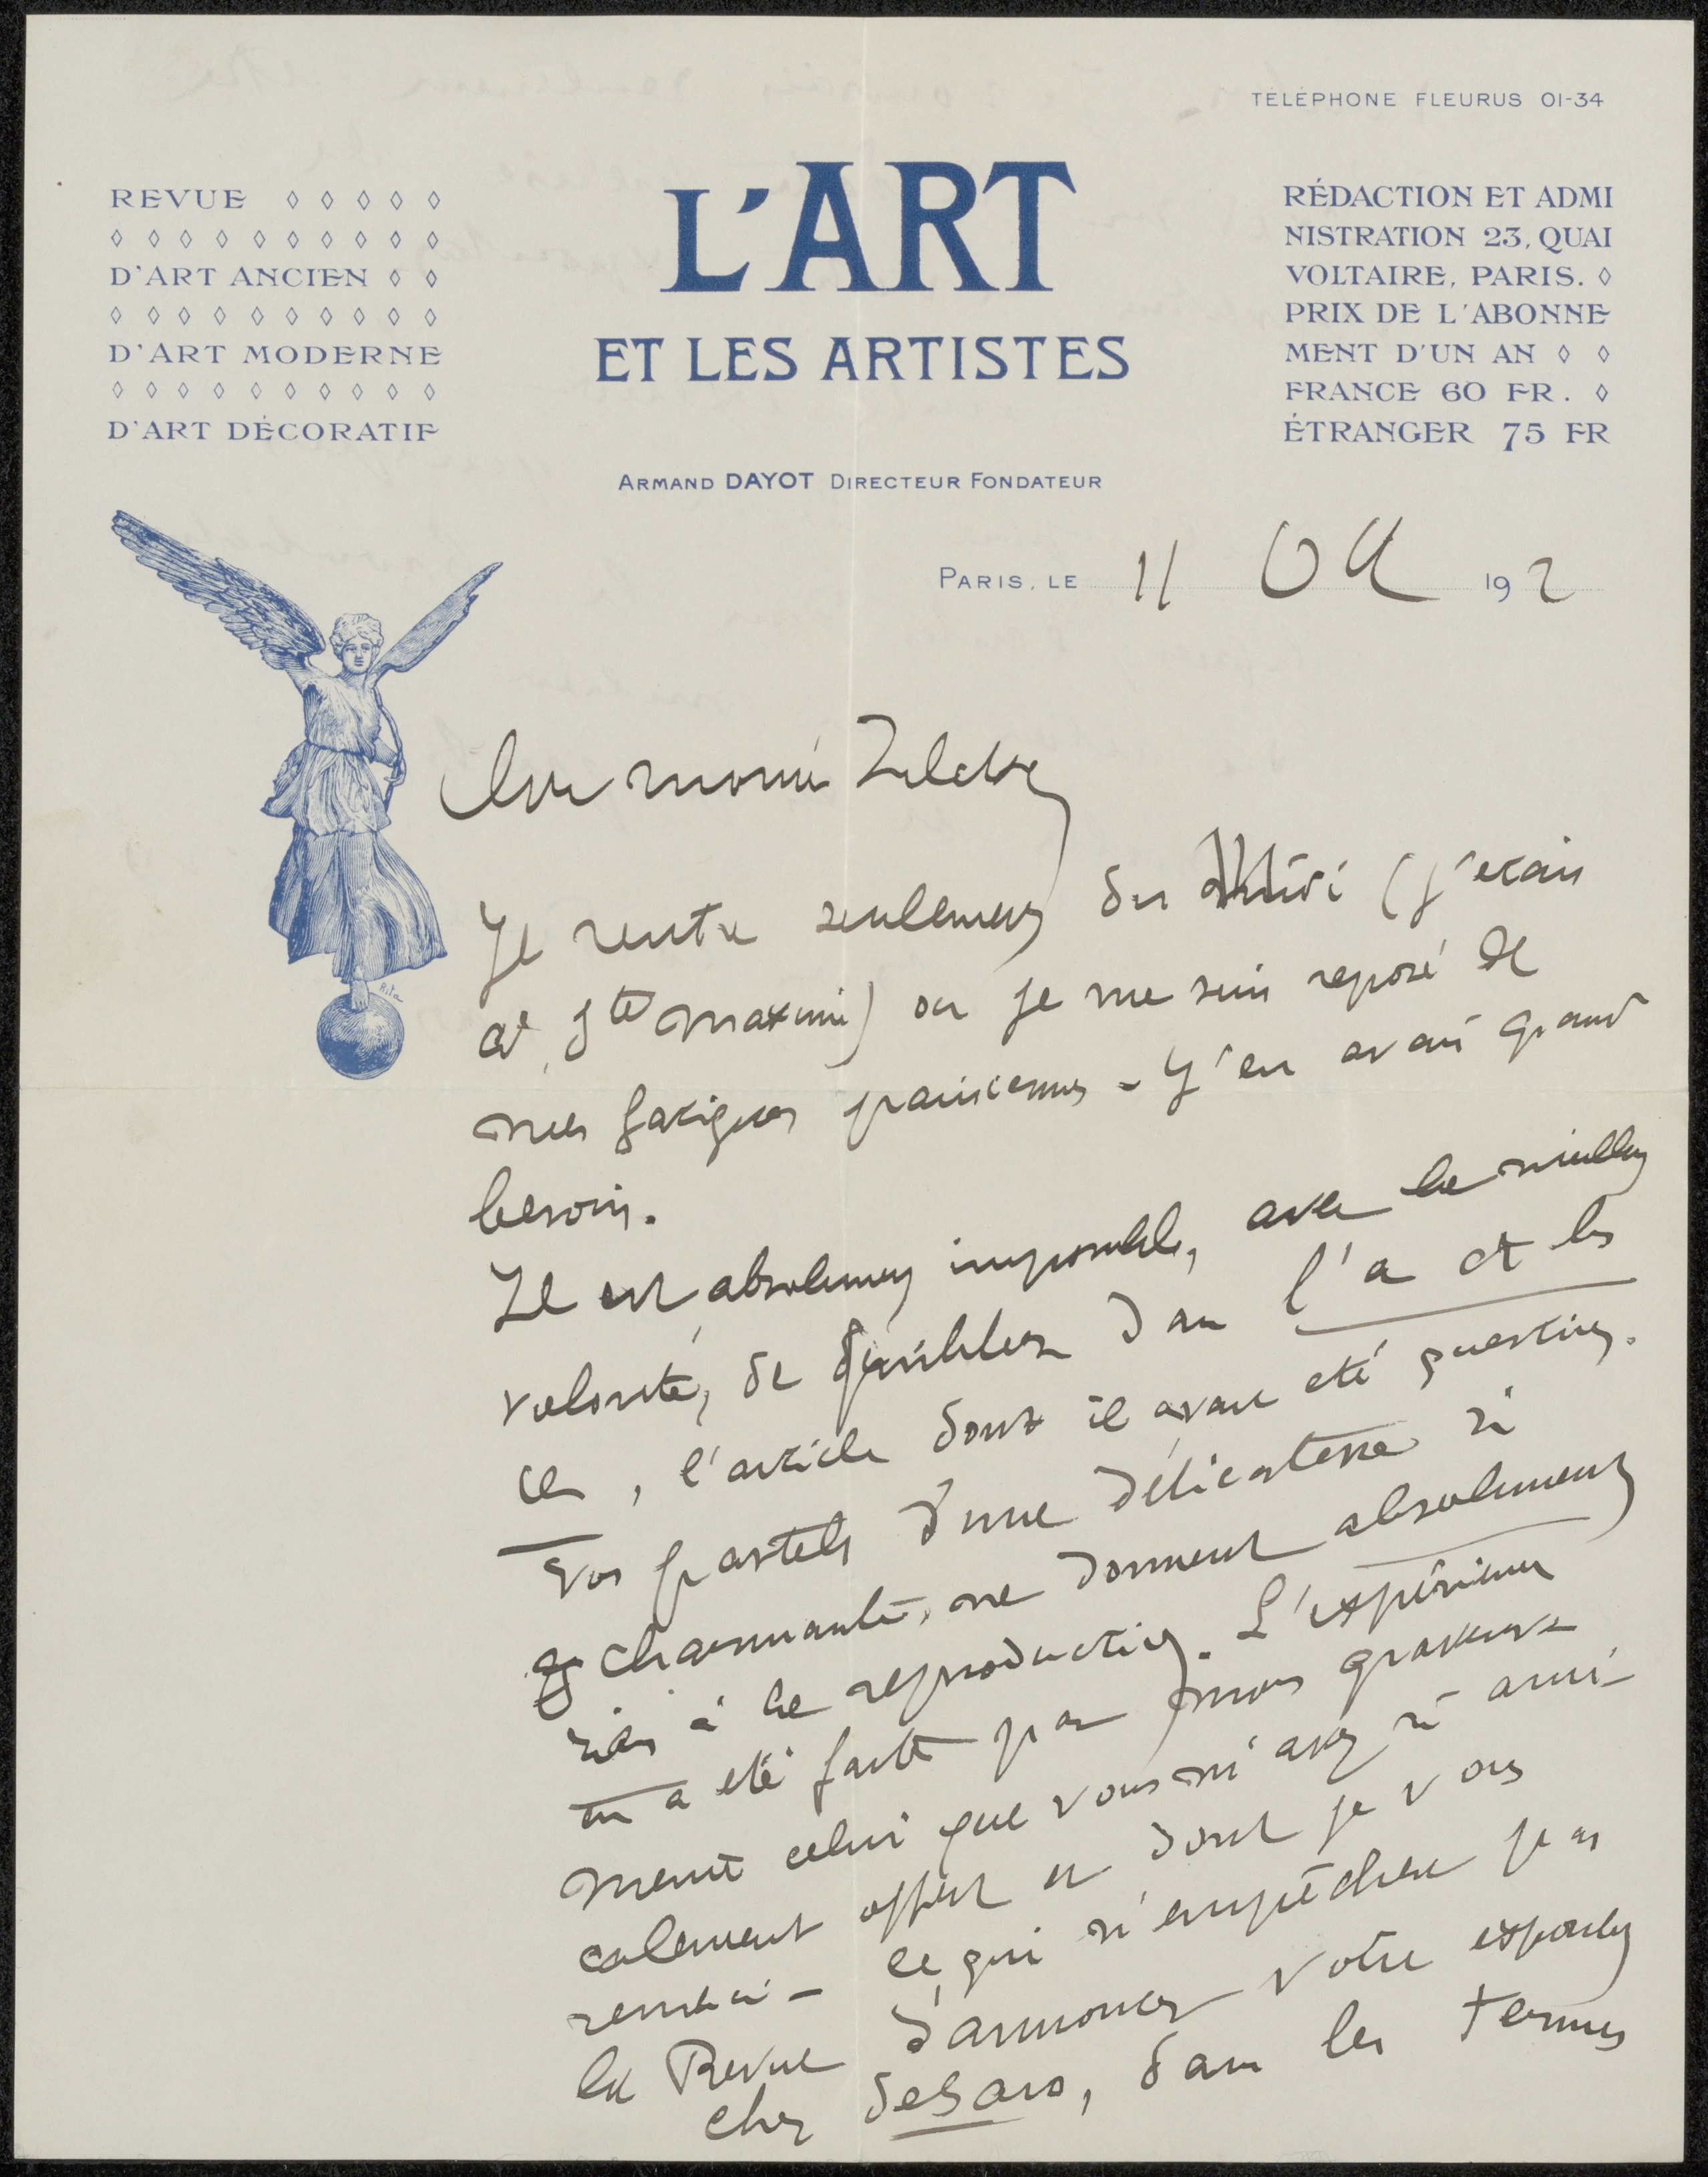 TÉLÉPHONE FLEURUS 01-34
REVUE
D'ART ANCIEN
D'ART MODERNE
D'ART DÉCORATIF
L'ART
ET LES ARTISTES
ARMAND DAYOT DIRECTEUR FONDATEUR
RÉDACTION ET ADMI
NISTRATION 23, QUAI
VOLTAIRE, PARIS.
PRIX DE L'ABONNE
MENT D'UN AN
FRANCE 60 FR.
ÉTRANGER 75 FR
PARIS, LE 11 Oct 192
Rita
Je rentre seulement du Midi (j'etais
à Ste Maxime) ou je me suis reposé de
mes fatigues parisiennes - J'en avais grand
besoin.
Il est absolument impossible, avec la meilleure
volonté, de publier dans l'a et les
as, l'article dont il avait eté question.
Vos pastels d'une délicatesse si
charmante, ne donnent absolument
rien à la reproduction. L'expérience
en a eté faite par mon graveur
celui que vous m'avez si ami-
calement offert et dont je vous
remercie - ce qui n'empêchera pas
la Revue d'annoncer votre exposition
chez , dans les termes